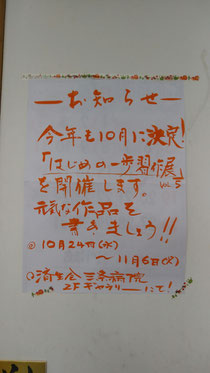 —お知らせ—
今年も10月に決定!
「はじめの一歩習作展」
vol.5
を開催します。
元気な作品を
書きましょう!!
@10月24日(水)
～11月6日(火)
@済生会三条病院
2Fギャラリーにて!